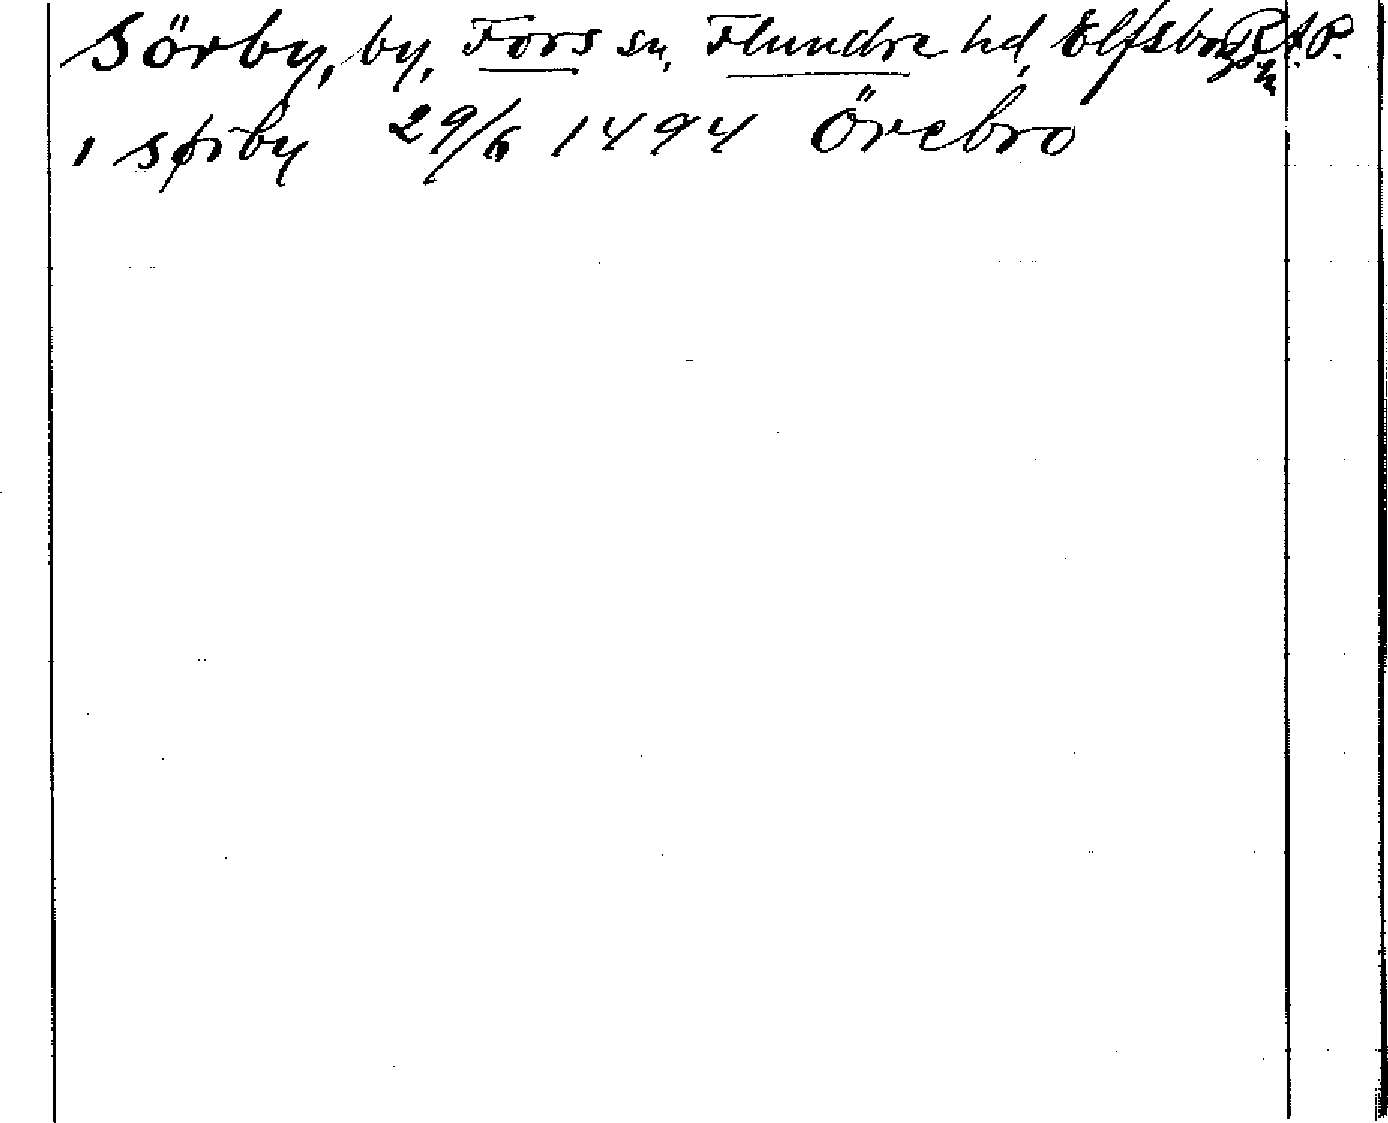 Sörby, by, Fors sn, Flundre hd, Elfsborgs ln R.A.P.
i Sørby 29/6 1494 Örebro